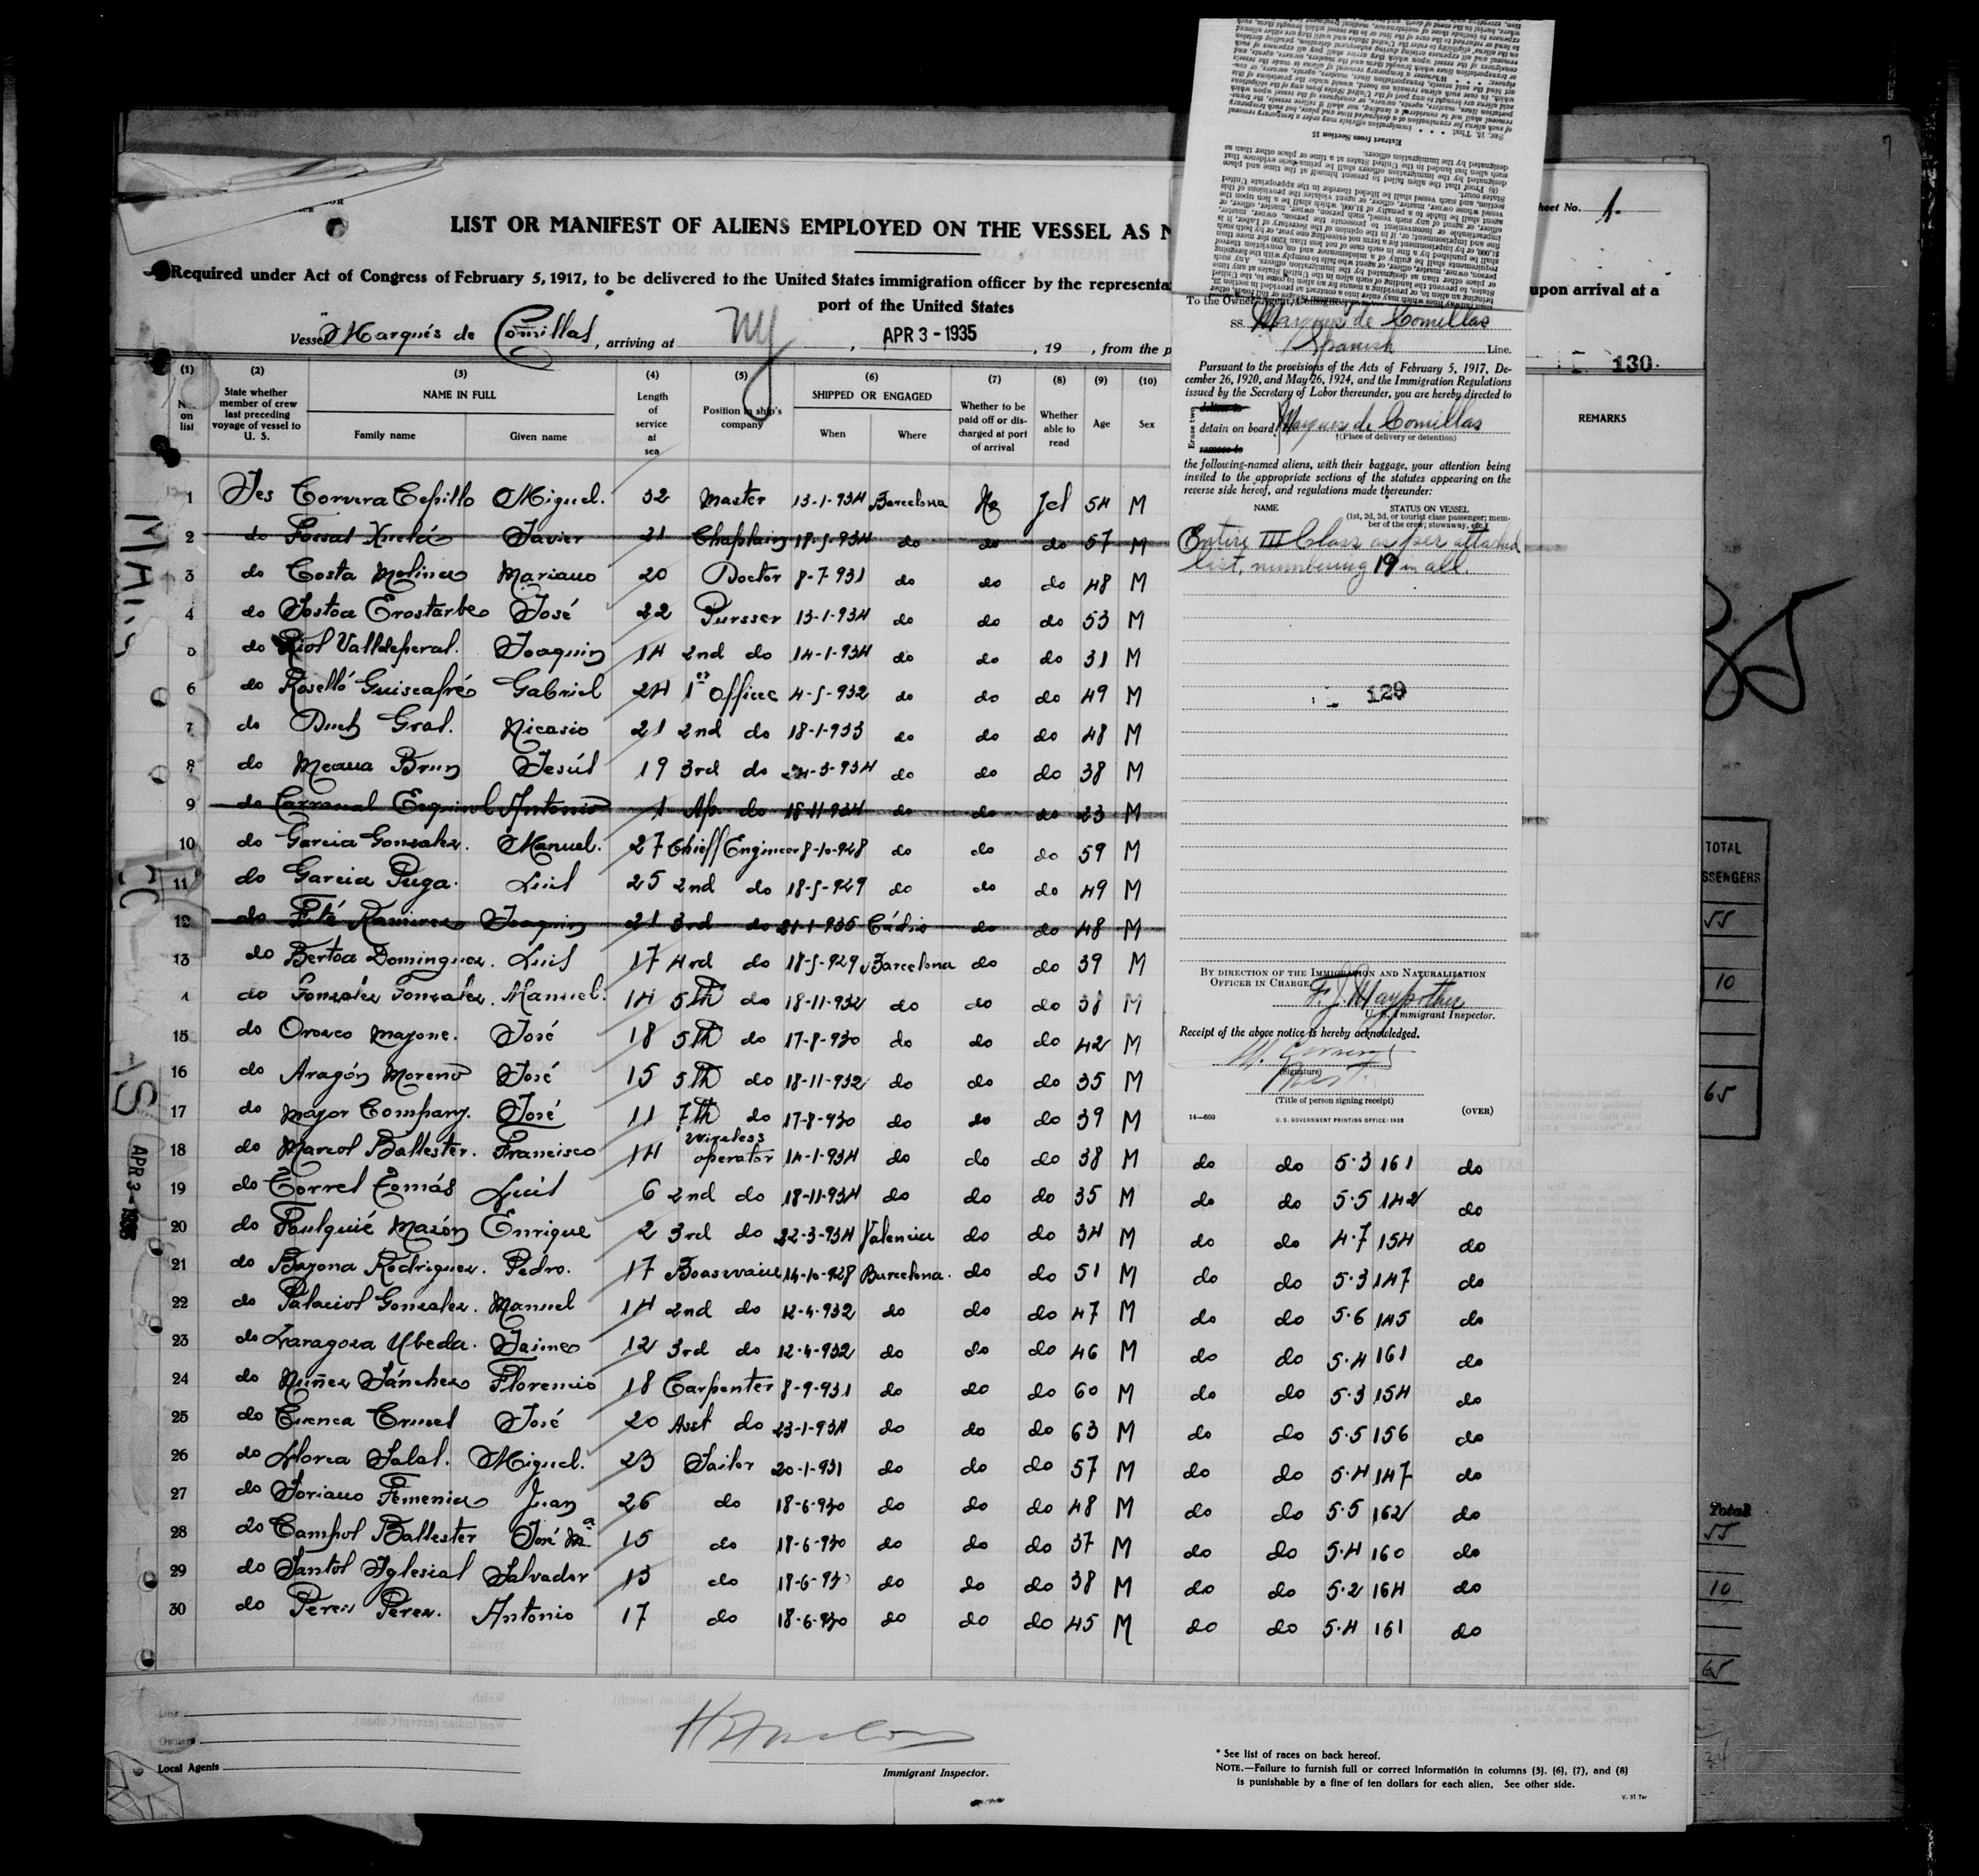 LIST OR MANIFEST OF ALIENS EMPLOYED ON THE VESSEL AS
Required under Act of Congress of February 5, 1917, to be delivered to the United States immigration officer by the representa
port of the United States
upon arrival at a
Sheet No. 1.
Vessel Marqués de Comillas, arriving at NY, APR 3 - 1935, 19 , from the p
130
(1) (2) (3) (4) (5) (6) (7) (8) (9) (10)
No. on list
State whether member of crew last preceding voyage of vessel to U. S.
NAME IN FULL
Family name Given name
Length of service at sea
Position in ship's company
SHIPPED OR ENGAGED
When Where
Whether to be paid off or discharged at port of arrival
Whether able to read
Age
Sex
REMARKS
1 Yes Corvera Cepillo Miguel. 32 Master 13-1-934 Barcelona No Yes 54 M
2 do Javier 21 Chaplain 18-5-934 do do do 57 M
3 do Costa Molina Mariano 20 Doctor 8-7-931 do do do 48 M
4 do Sostoa Erostarbe José 22 Pursser 13-1-934 do do do 53 M
5 do Riol Valldeperal. Joaquin 14 2nd do 14-1-934 do do do 31 M
6 do Roselló Guiscafré Gabriel 24 1er Officc 4-5-932 do do do 49 M
7 do Duch Gral. Nicasio 21 2nd do 18-1-933 do do do 48 M
8 do Meana Brun Jesús 19 3rd do 24-3-934 do do do 38 M
9 do Carrasal Esquivel Antonio 1 Ap. do 18-11-934 do do do 23 M
10 do Garcia Gonzalez. Manuel. 27 Chieff Engineer 8-10-928 do do do 59 M
11 do Garcia Puga. Luis 25 2nd do 18-5-929 do do do 49 M
12 do Fité Ramirez Joaquin 21 3rd do 21-1-935 Cádiz do do 48 M
13 do Bertoa Dominguez. Luis 17 4rd do 18-5-929 Barcelona do do 39 M
4 do Gonzalez Gonzalez. Manuel. 14 5th do 18-11-932 do do do 38 M
15 do Orozco Mayone. José 18 5th do 17-8-930 do do do 42 M
16 do Aragón Moreno José 15 5th do 18-11-932 do do do 35 M
17 do Mayor Company. José 11 7th do 17-8-930 do do do 39 M
18 do Marcos Ballester. Francisco 14 Wireless operator 14-1-934 do do do 38 M do do 5·3 161 do
19 do Torres Tomás Luis 6 2nd do 18-11-934 do do do 35 M do do 5·5 142 do
20 do Foulquié Mazón Enrique 2 3rd do 22-3-934 Valencia do do 34 M do do 4·7 154 do
21 do Bayona Rodriguez. Pedro. 17 14-10-928 Barcelona. do do 51 M do do 5·3 147 do
22 do Palacios Gonzalez. Manuel 14 2nd do 12-4-932 do do do 47 M do do 5·6 145 do
23 do Zaragoza Ubeda. Jaime 12 3rd do 12-4-932 do do do 46 M do do 5·4 161 do
24 do Nuñez Sánchez Florencio 18 Carpenter 8-9-931 do do do 60 M do do 5·3 154 do
25 do Cuenca José 20 Asst do 23-1-934 do do do 63 M do do 5·5 156 do
26 do Llorca Salas. Miguel. 23 Sailor 20-1-931 do do do 57 M do do 5·4 147 do
27 do Soriano Femenia Juan 26 do 18-6-930 do do do 48 M do do 5·5 162 do
28 do Campos Ballester José Ma 15 do 18-6-930 do do do 37 M do do 5·4 160 do
29 do Santos Iglesias Salvador 13 do 18-6-930 do do do 38 M do do 5·2 164 do
30 do Perez Perez. Antonio 17 do 18-6-930 do do do 45 M do do 5·4 161 do
Line
Owners
Local Agents
Immigrant Inspector.
* See list of races on back hereof.
NOTE.—Failure to furnish full or correct information in columns (3), (6), (7), and (8)
is punishable by a fine of ten dollars for each alien, See other side.
Extract from Section 15
To the Owner, Agent, Consignee
SS. Marques de Comillas
Spanish Line.
Pursuant to the provisions of the Acts of February 5, 1917, De-
cember 26, 1920, and May 26, 1924, and the Immigration Regulations
issued by the Secretary of Labor thereunder, you are hereby directed to
Erase two
deliver to
detain on board Marques de Comillas
(Place of delivery or detention)
remove to
the following-named aliens, with their baggage, your attention being
invited to the appropriate sections of the statutes appearing on the
reverse side hereof, and regulations made thereunder:
NAME STATUS ON VESSEL
(1st, 2d, 3d, or tourist class passenger; mem-
ber of the crew; stowaway, etc.)
Entire III Class as per attached
list, numbering 19 in all.
129
BY DIRECTION OF THE IMMIGRATION AND NATURALIZATION
OFFICER IN CHARGE
U. S. Immigrant Inspector.
Receipt of the above notice is hereby acknowledged.
(Signature)
(Title of person signing receipt)
14—660 U. S. GOVERNMENT PRINTING OFFICE: 1933 (OVER)
APR 3 - 1935
TOTAL
55
10
65
Total
55
10
65